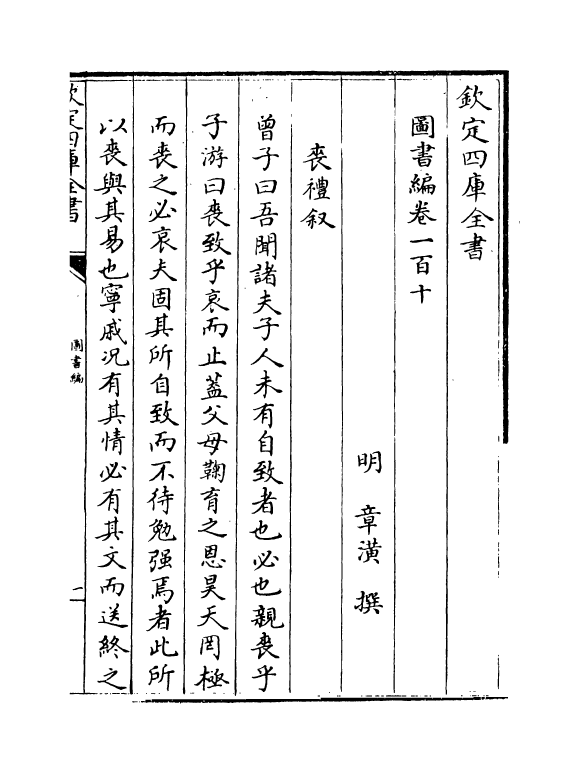 欽定四庫全書
圖書編卷一百十
明 章潢 撰
喪禮叙
曾子曰吾聞諸夫子人未有自致者也必也親喪乎
子游曰喪致乎哀而止葢父母鞠育之恩昊天罔極
而喪之必哀夫固其所自致而不待勉强焉者此所
以喪與其易也寧戚况有其情必有其文而送終之
欽定四庫全書
圖書編